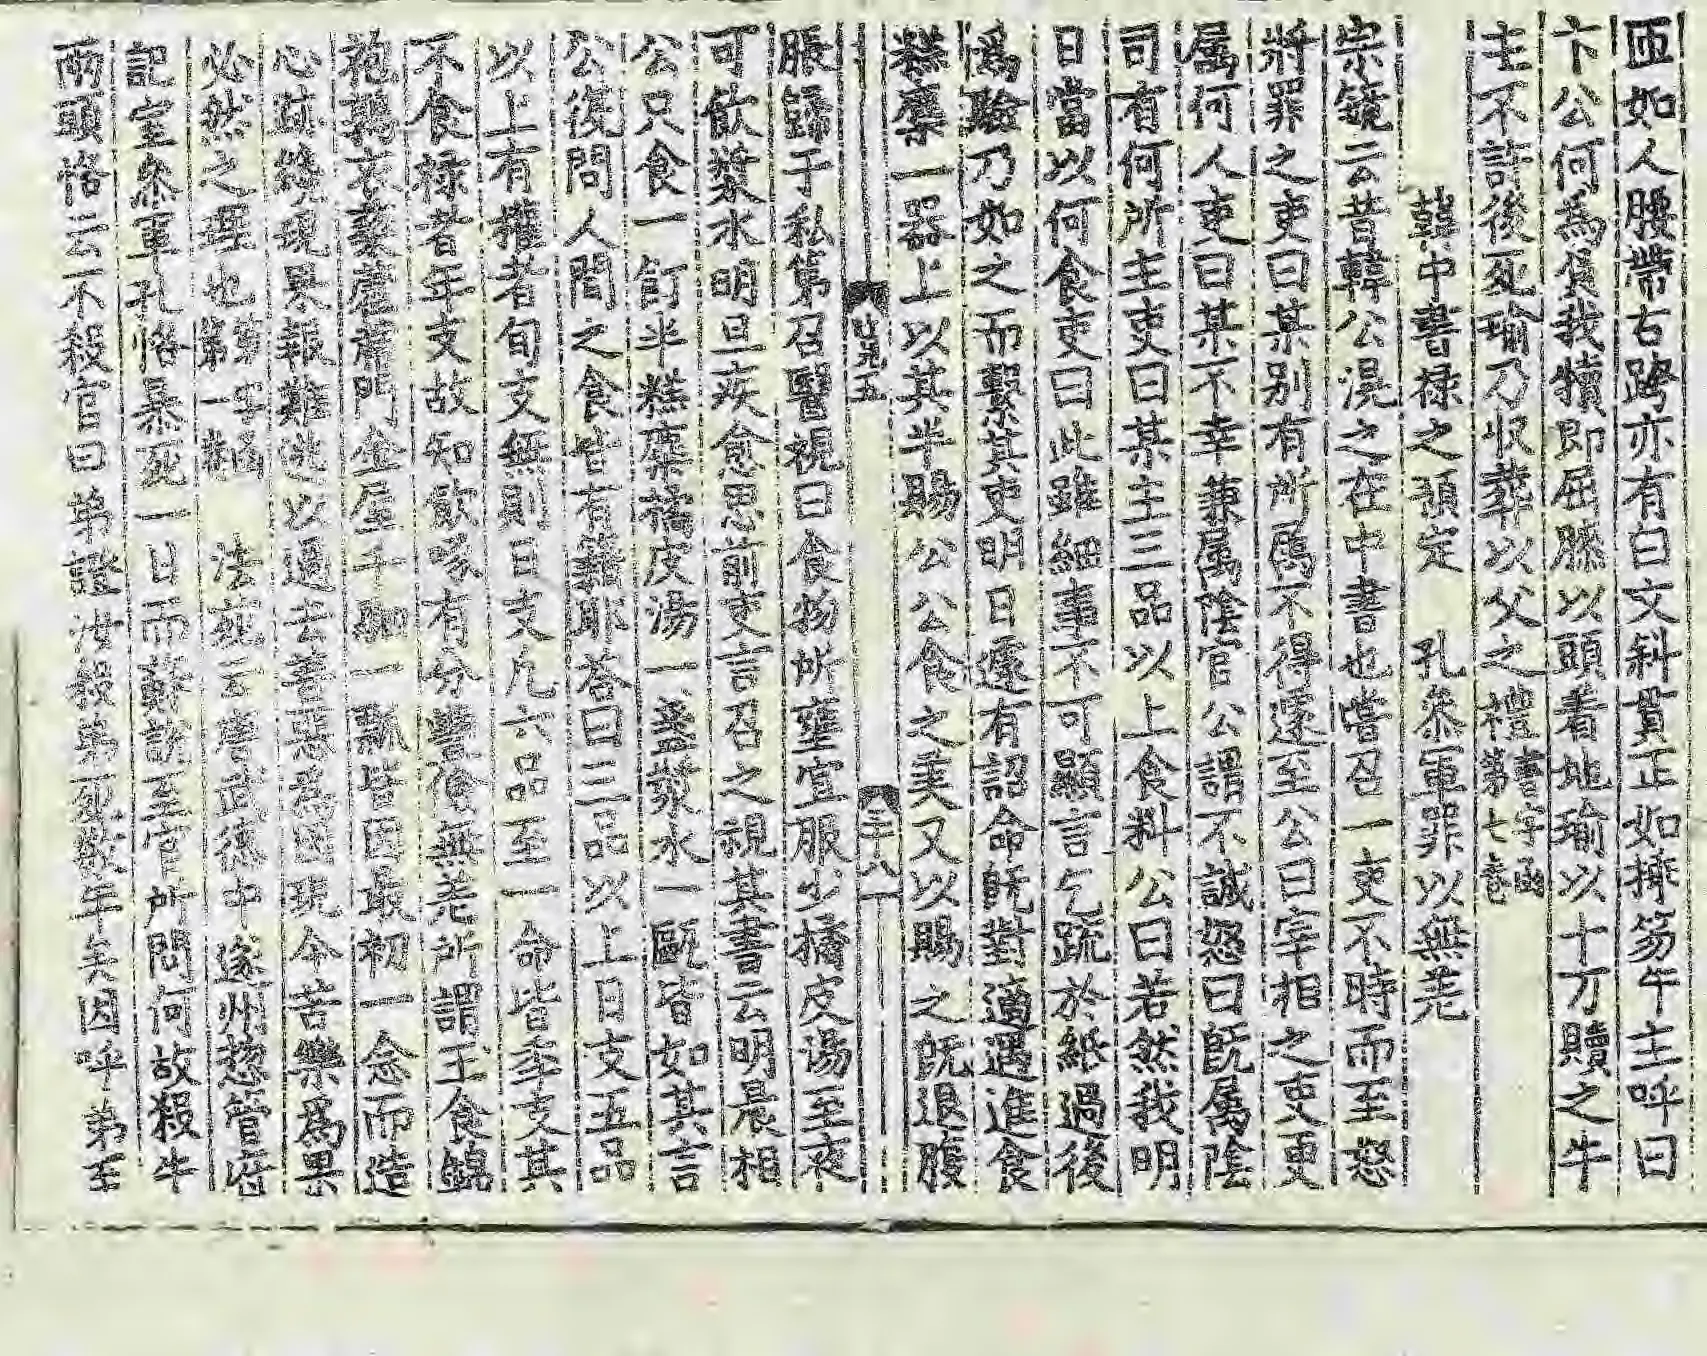 匝如人腰帶右跨亦有白文斜貫正如搢笏牛主呼曰
卞公何爲負我犢即屈膝以頭着地瑜以十万贖之牛
主不許後死瑜乃収葬以父之禮 書字函第七卷
韓中書祿之預定 孔叅軍罪以無差
宗鏡云昔韓公滉之在中書也嘗召一吏不時而至怒
將罪之吏曰某別有所属不得遽至公曰宰相之吏更
属何人吏曰某不幸兼属陰官公謂不誠怒曰旣属陰
司有何所主吏曰某主三品以上食料公曰若然我明
日當以何食吏曰此雖細事不可顯言乞䟽於紙過後
爲驗乃如之而繫其吏明日遽有詔命旣對適遇進食
糕糜一器上以其半賜公公食之美又以賜之旣退腹
脹歸于私第召醫視曰食物所壅宜服少橘皮湯至夜
可飮漿水明旦疾愈思前吏言召之視其書云明晨相
公只食一飣半糕糜橘皮湯一盞漿水一甌皆如其言
公復問人間之食皆有籍耶荅曰三品以上日支五品
以上有權者旬支無則月支凡六品至一命皆季支其
不食祿者年支故知飮啄有分豐儉無差所謂玉食錦
袍鶉衣藜藿席門金屋千駟一瓢皆因最初一念而造
心跡纔現果報難逃以過去善惡爲因現今苦樂爲果
必然之理也 第一 法苑云唐武德中遂州惣管府
記室叅軍孔恪暴死一日而蘇說至官所問何故殺牛
兩頭恪云不殺官曰弟證汝殺 年矣因呼弟至